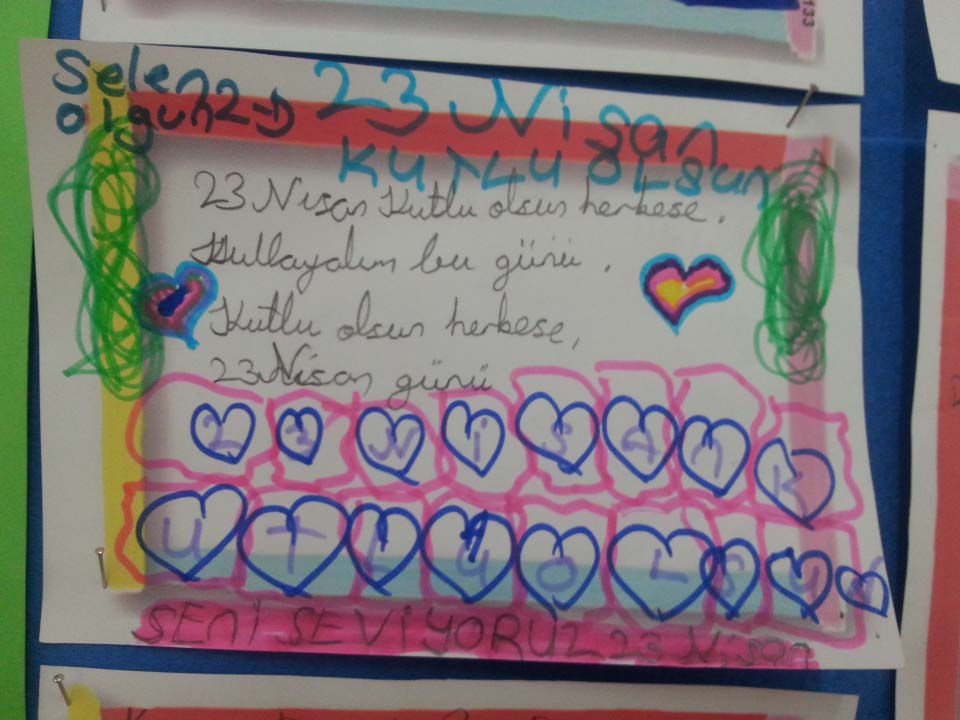 133
Selen
olgun 2-D
23 Nisan
KUTLU OLSun
23 Nisan Kutlu olsun herkese.
Kullayalım bu günü.
Kutlu olsun herkese,
23 Nisan günü
23 NiSAn K
UTLU OLSUn
SENİ SEVİYORUZ 23 Nisan